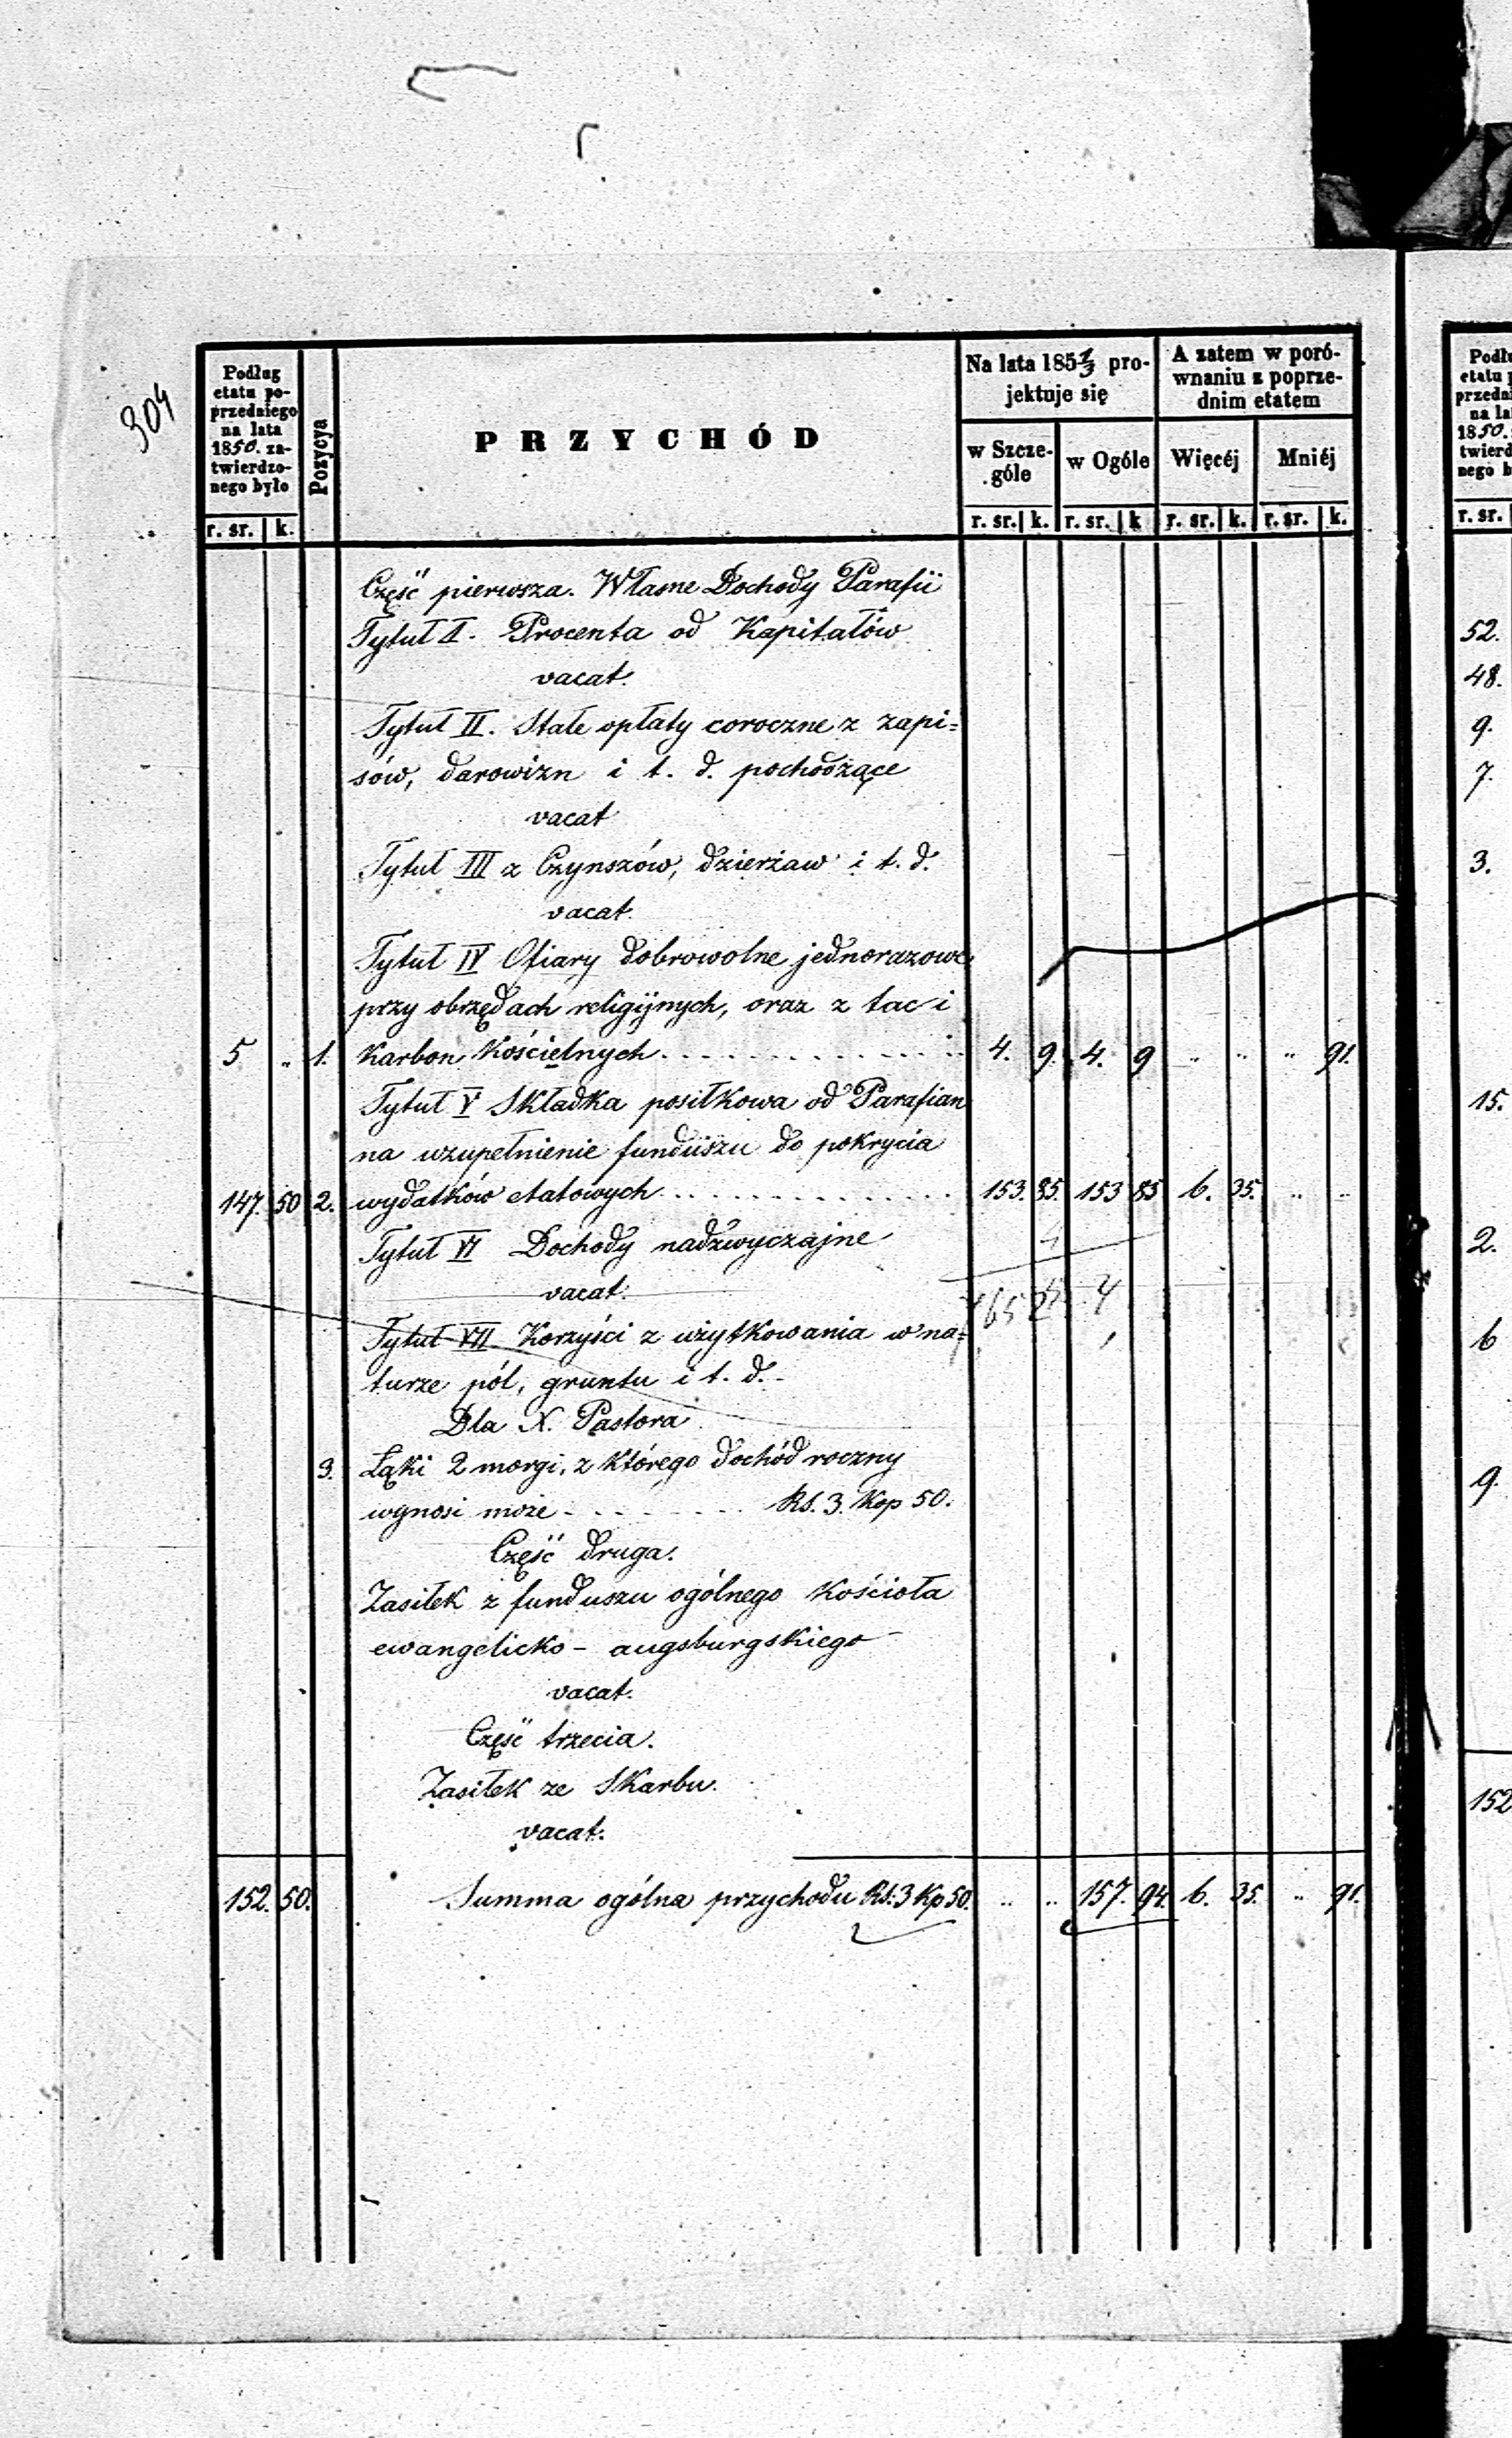 304
Podług
etatu po-
przedniego
na lata
1850. za-
twierdzo-
nego było
r. sr. k.
Pozycya
PRZYCHÓD
Na lata 1851/3 pro-
jektuje się
w Szcze-
góle
r. sr. k.
w Ogóle
r. sr. k
A zatem w poró-
wnaniu z poprze-
dnim etatem
Więcéj
r. sr. k.
Mniéj
r. sr. k.
Część pierwsza. Własne Dochody Parafii
Tytuł I. Procenta od Kapitałów
vacat.
Tytuł II. Stałe opłaty coroczne z zapi=
sów, darowizn i t. d. pochodzące
vacat
Tytuł III z Czynszów, dzierżaw i t. d.
vacat.
Tytuł IV Ofiary dobrowolne jednorazowe
przy obrzędach religijnych, oraz z tac i
5 „ 1. Karbon Kościelnych. . . . . . . . . . . . . 4. 9. 4. 9 „ „ „ 91.
Tytuł V Składka posiłkowa od Parafian
na uzupełnienie funduszu do pokrycia
147. 50 2. wydatków etatowych . . . . . . . . . . . . . 153. 85. 153 85 6. 35. „ „
Tytuł VI Dochody nadzwyczajne
vacat.
Tytuł VII Korzyści z użytkowania w na=
turze pól, gruntu i t. d.
Dla N. Pastora
3. Łąki 2 morgi, z którego dochód roczny
wynosi może . . . . . . . Rs. 3. Kop 50.
Część druga.
Zasiłek z funduszu ogólnego Kościoła
ewangelicko - augsburgskiego
vacat.
Część trzecia.
Zasiłek ze Skarbu.
vacat.
152. 50. Summa ogólna przychodu Rs. 3 Kp 50. „ „ 157. 94. 6. 35. „ 91.
52.
48.
9.
7.
3.
15.
2.
6
9.
152